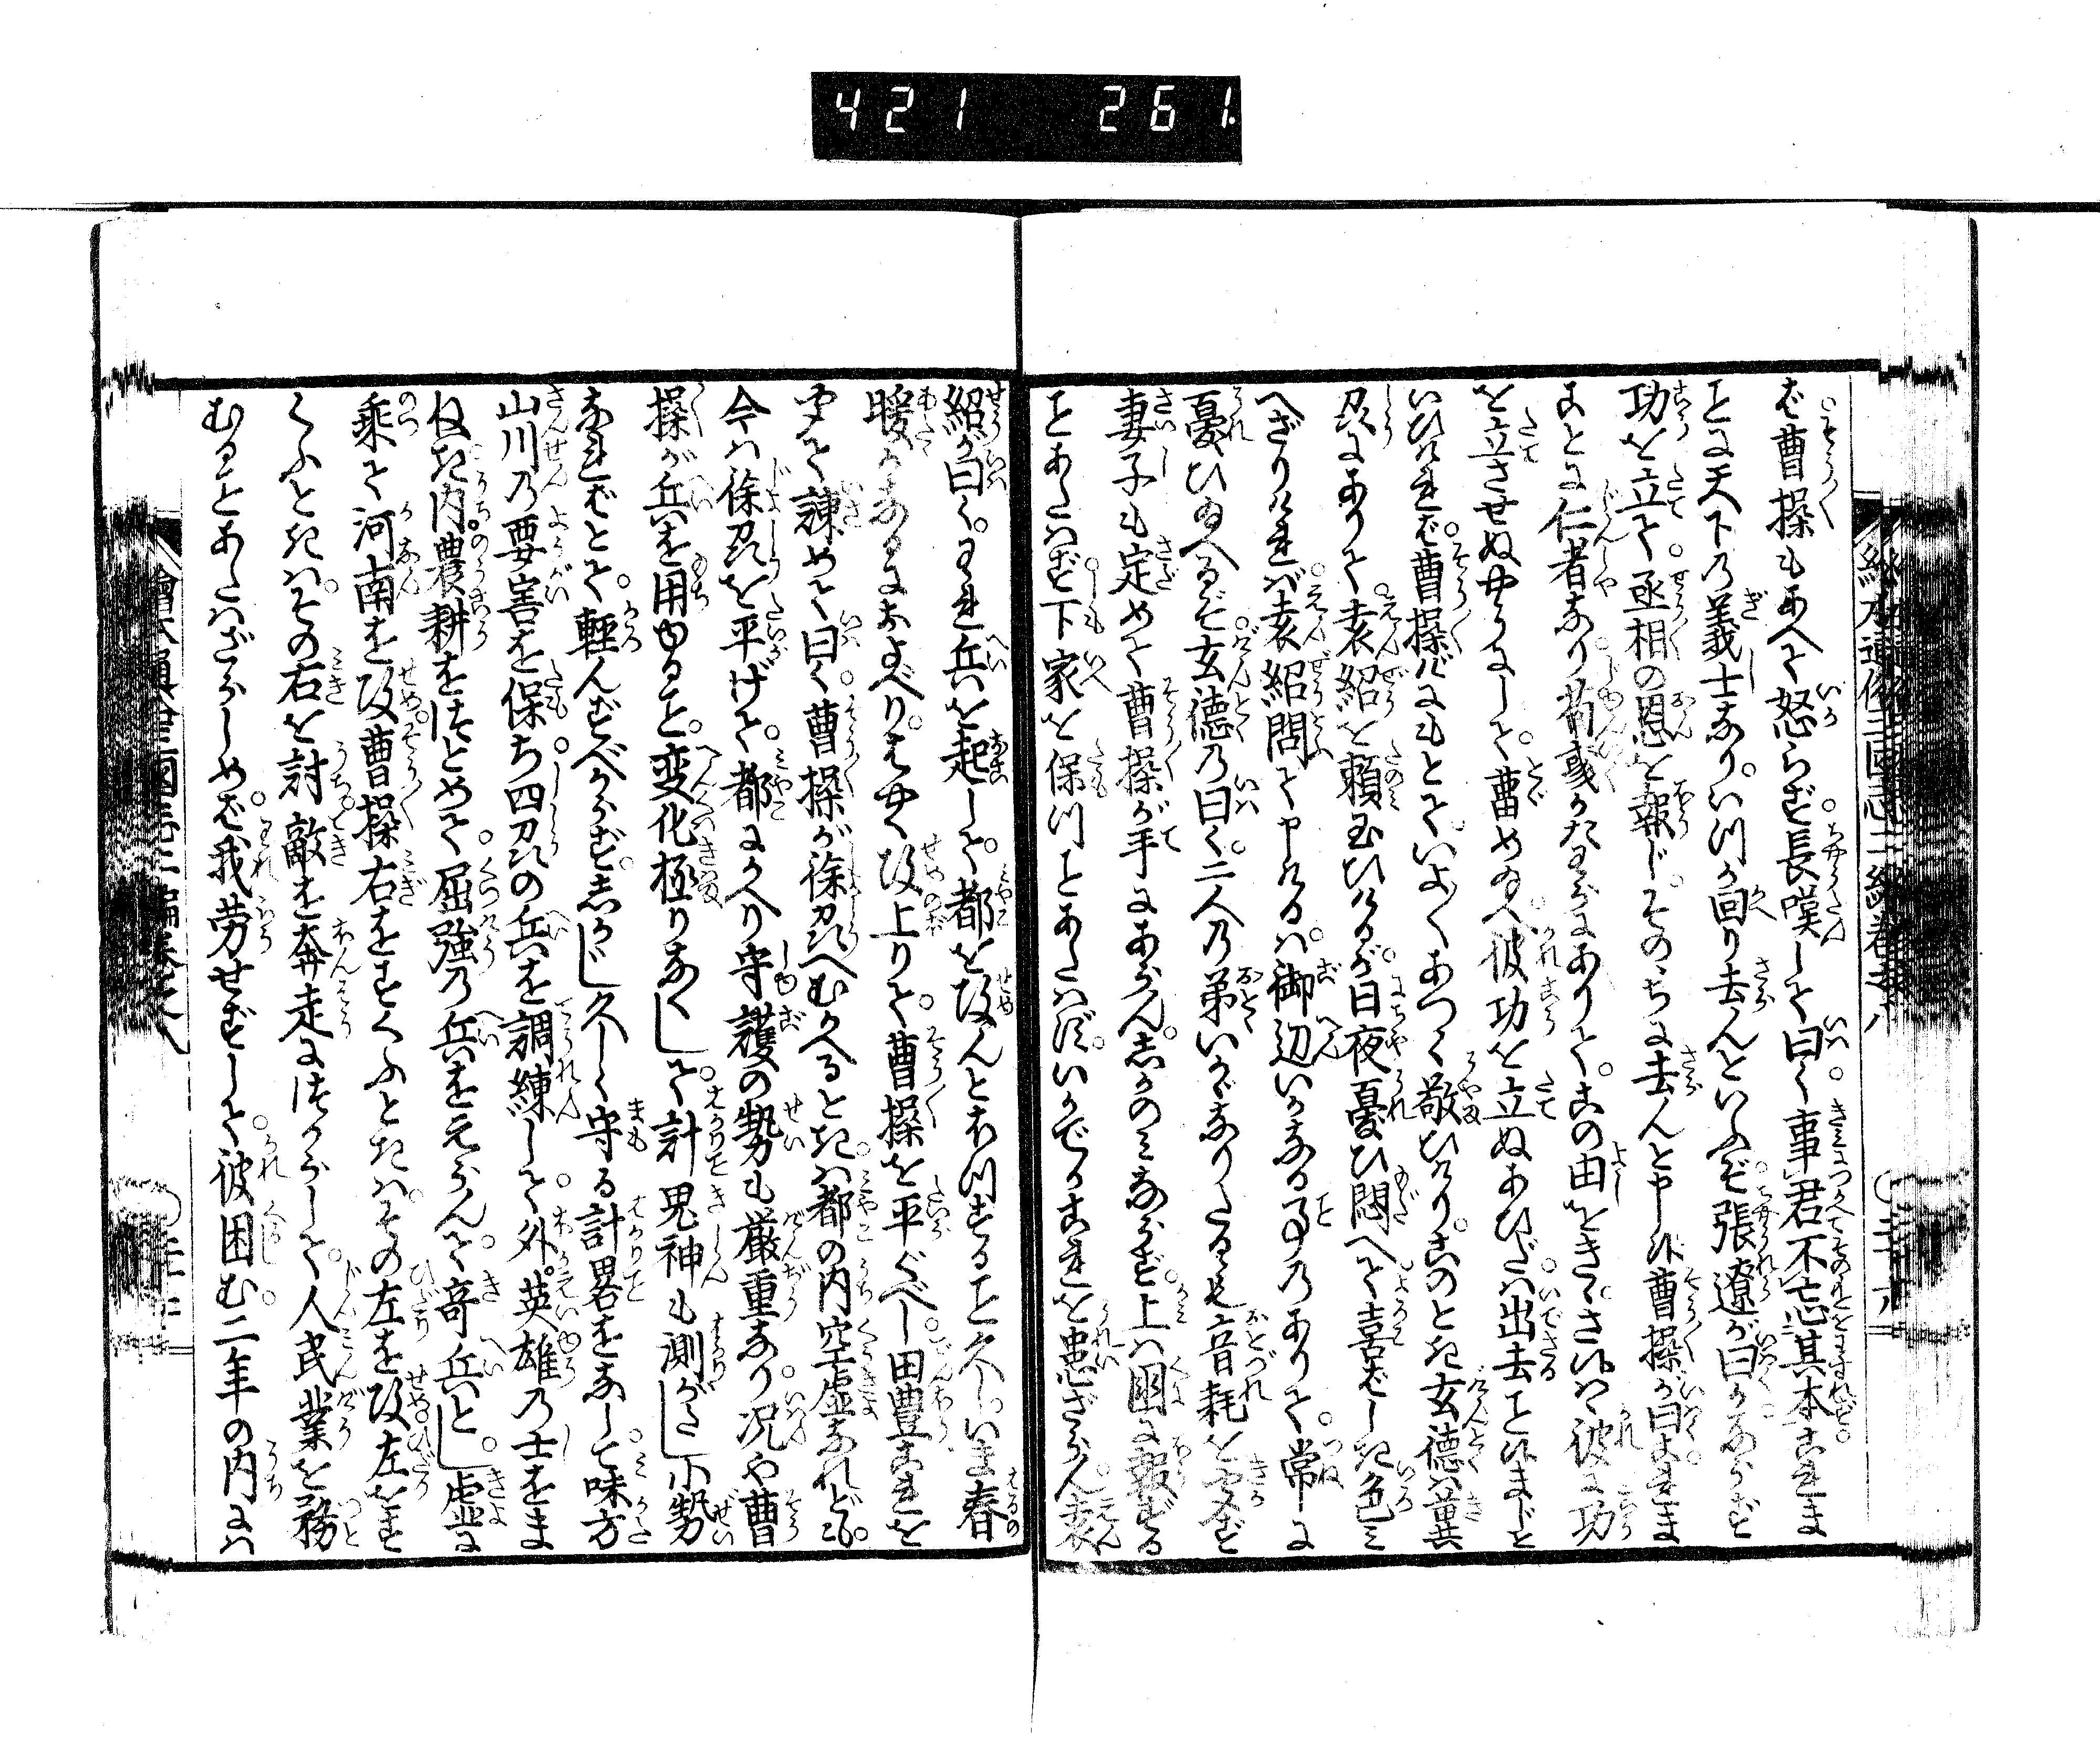 421 261.
ば曹操もあへて怒らず長嘆して曰く事君不忘其本これま
ことに天下乃義士なりいつか回り去んといふぞ張遼が曰かならず
功を立て丞相の恩を報じそのちに去んと申し候曹操が曰これま
ことに仁者なり荀彧かたわらにありてこの由をききさらば彼に功
を立させぬやうにして留めゐへ彼功を立ぬあひだは出去こと候まじと
いひければ曹操げにもとていよくあつく敬ひけりこのとき玄徳は冀
州にありて袁紹を頼玉ひけるが日夜憂ひ悶へて喜ばしき色み
へざりければ袁紹問て申けるは御辺いかなる事乃ありて常に
憂ひゐへるぞ玄徳乃曰く二人乃弟いかがなりたるや音耗を聞ず
妻子も定めて曹操が手にあらんしかのみならず上は国に報ずる
ことあたはず下家を保つことあたはずいかでかこれを患ざらん袁
紹が曰くわれ兵を起して都を攻んとおつすること久しいま春
暖かなるにおよべりはやく攻上りて曹操を平ぐべし田豊これを
聞て諫めて曰く曹操が徐州へむかへるときは都の内空虚なれども
今は徐州を平げて都にかへり守護の勢も厳重なり況や曹
操が兵を用ゆること変化極りなくして計鬼神も測がたし小勢
なればとて軽んずべからずしかじ久しく守る計畧をなして味方
山川乃要害を保ち四州の兵を調練して外英雄乃士をま
ねき内農耕をつとめて屈強乃兵をえらんで奇兵とし虚に
乗て河南を攻曹操右をすくふときはその左を攻左をす
くふときはその右を討敵を奔走につからして人民業を務
むることあたはざらしめば我労せずして彼困む二年の内には